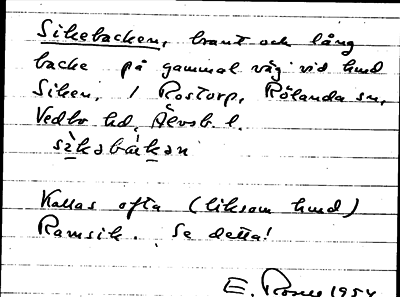 Sikebacken, brant och lång
backe på gammal väg vid hmd
Siken, i Rostorp, Rölanda sn,
Vedbo hd, Älvsb. l.
sìkəbákən
Kallas ofta (liksom hmd)
Ramsik. Se detta!
E. 1954